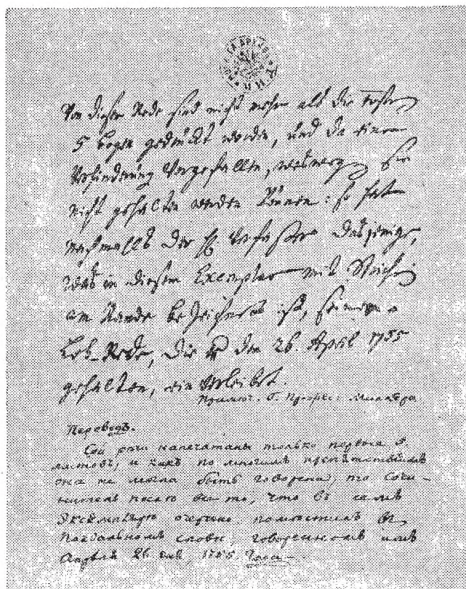 Von dieser Rede sind nicht mehr als die ersten
5 bogen gedruckt worden, und da eine
Verhinderung vorgefallen, weswegen sie
nicht gehalten werden können: so hat
nachmahls der H. Verfasser dasjenige,
was in diesem Exemplar mit Strichen
am Rande bezeichnet ist, seiner
Lob-Rede, die er den 26. April 1755
gehalten, ein verleibet.
Примѣч. Г. Профес. Миллера.
Переводъ.
Сей рѣчи напечатаны только первые 5.
листовъ, и какъ по многимъ препятствіямъ
она не могла быть говорена, то сочи-
нитель послѣ все то, что въ семъ
Экземплярѣ очерчено, помѣстилъ въ
Похвальномъ словѣ, говоренномъ имъ
Апрѣля 26. дня, 1755. Года.